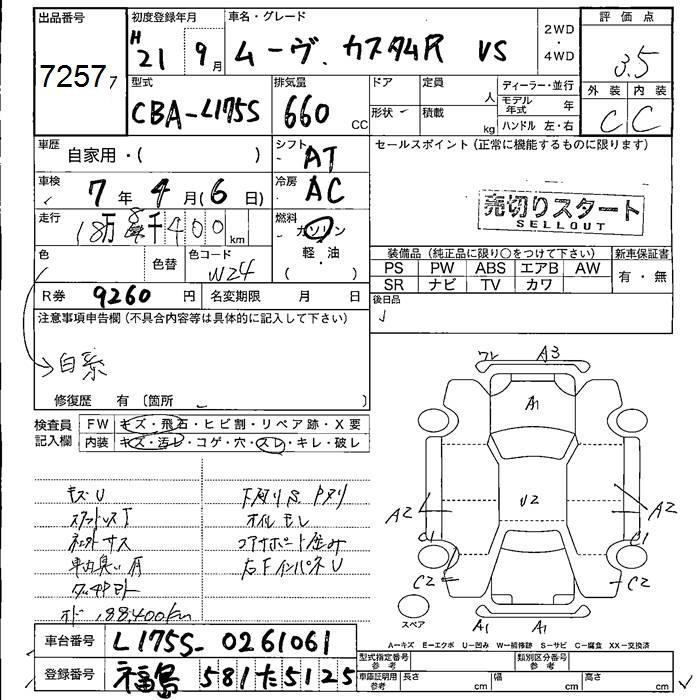 出品番号
7257 7
初度登録年月
H 21 9月
車名・グレード
ムーヴ. カスタムR VS
2WD
・
4WD
評価点
3.5
型式
CBA-L175S
排気量
660 CC
ドア
形状
定員 人
積載 kg
ディーラー・並行
モデル年式 年
ハンドル 左・右
外装 内装
C C
車歴 自家用・( )
シフト AT
セールスポイント(正常に機能するものに限ります)
車検 7年4月(6日)
冷房 AC
売切りスタート
SELLOUT
走行 18万8千400km
燃料 ガソリン
軽・油
( )
色
色替
色コード W24
装備品(純正品に限り○をつけて下さい)
新車保証書
PS PW ABS エアB AW
SR ナビ TV カワ
有・無
R券 9260円
名変期限 月 日
後日品
注意事項申告欄(不具合内容等は具体的に記入して下さい)
白系
修復歴 有 〔箇所
検査員記入欄
FW キズ・飛石・ヒビ割・リペア跡・X要
内装 キズ・汚レ・コゲ・穴・スレ・キレ・破レ
ワレ A3
A1
U2
A2 A2
C2 C2
A1 A1
スペア
キズU
オイルモレ
コアサポート歪み
右FインパネU
車内臭い有
188,400km
A=キズ E=エクボ U=凹み W=補修跡 S=サビ C=腐食 XX=交換済
車台番号 L175S-0261061
登録番号 福島 581 た 5125
型式指定番号 参考
類別区分番号 参考
車庫証明用 参考 長さ cm 幅 cm 高さ cm